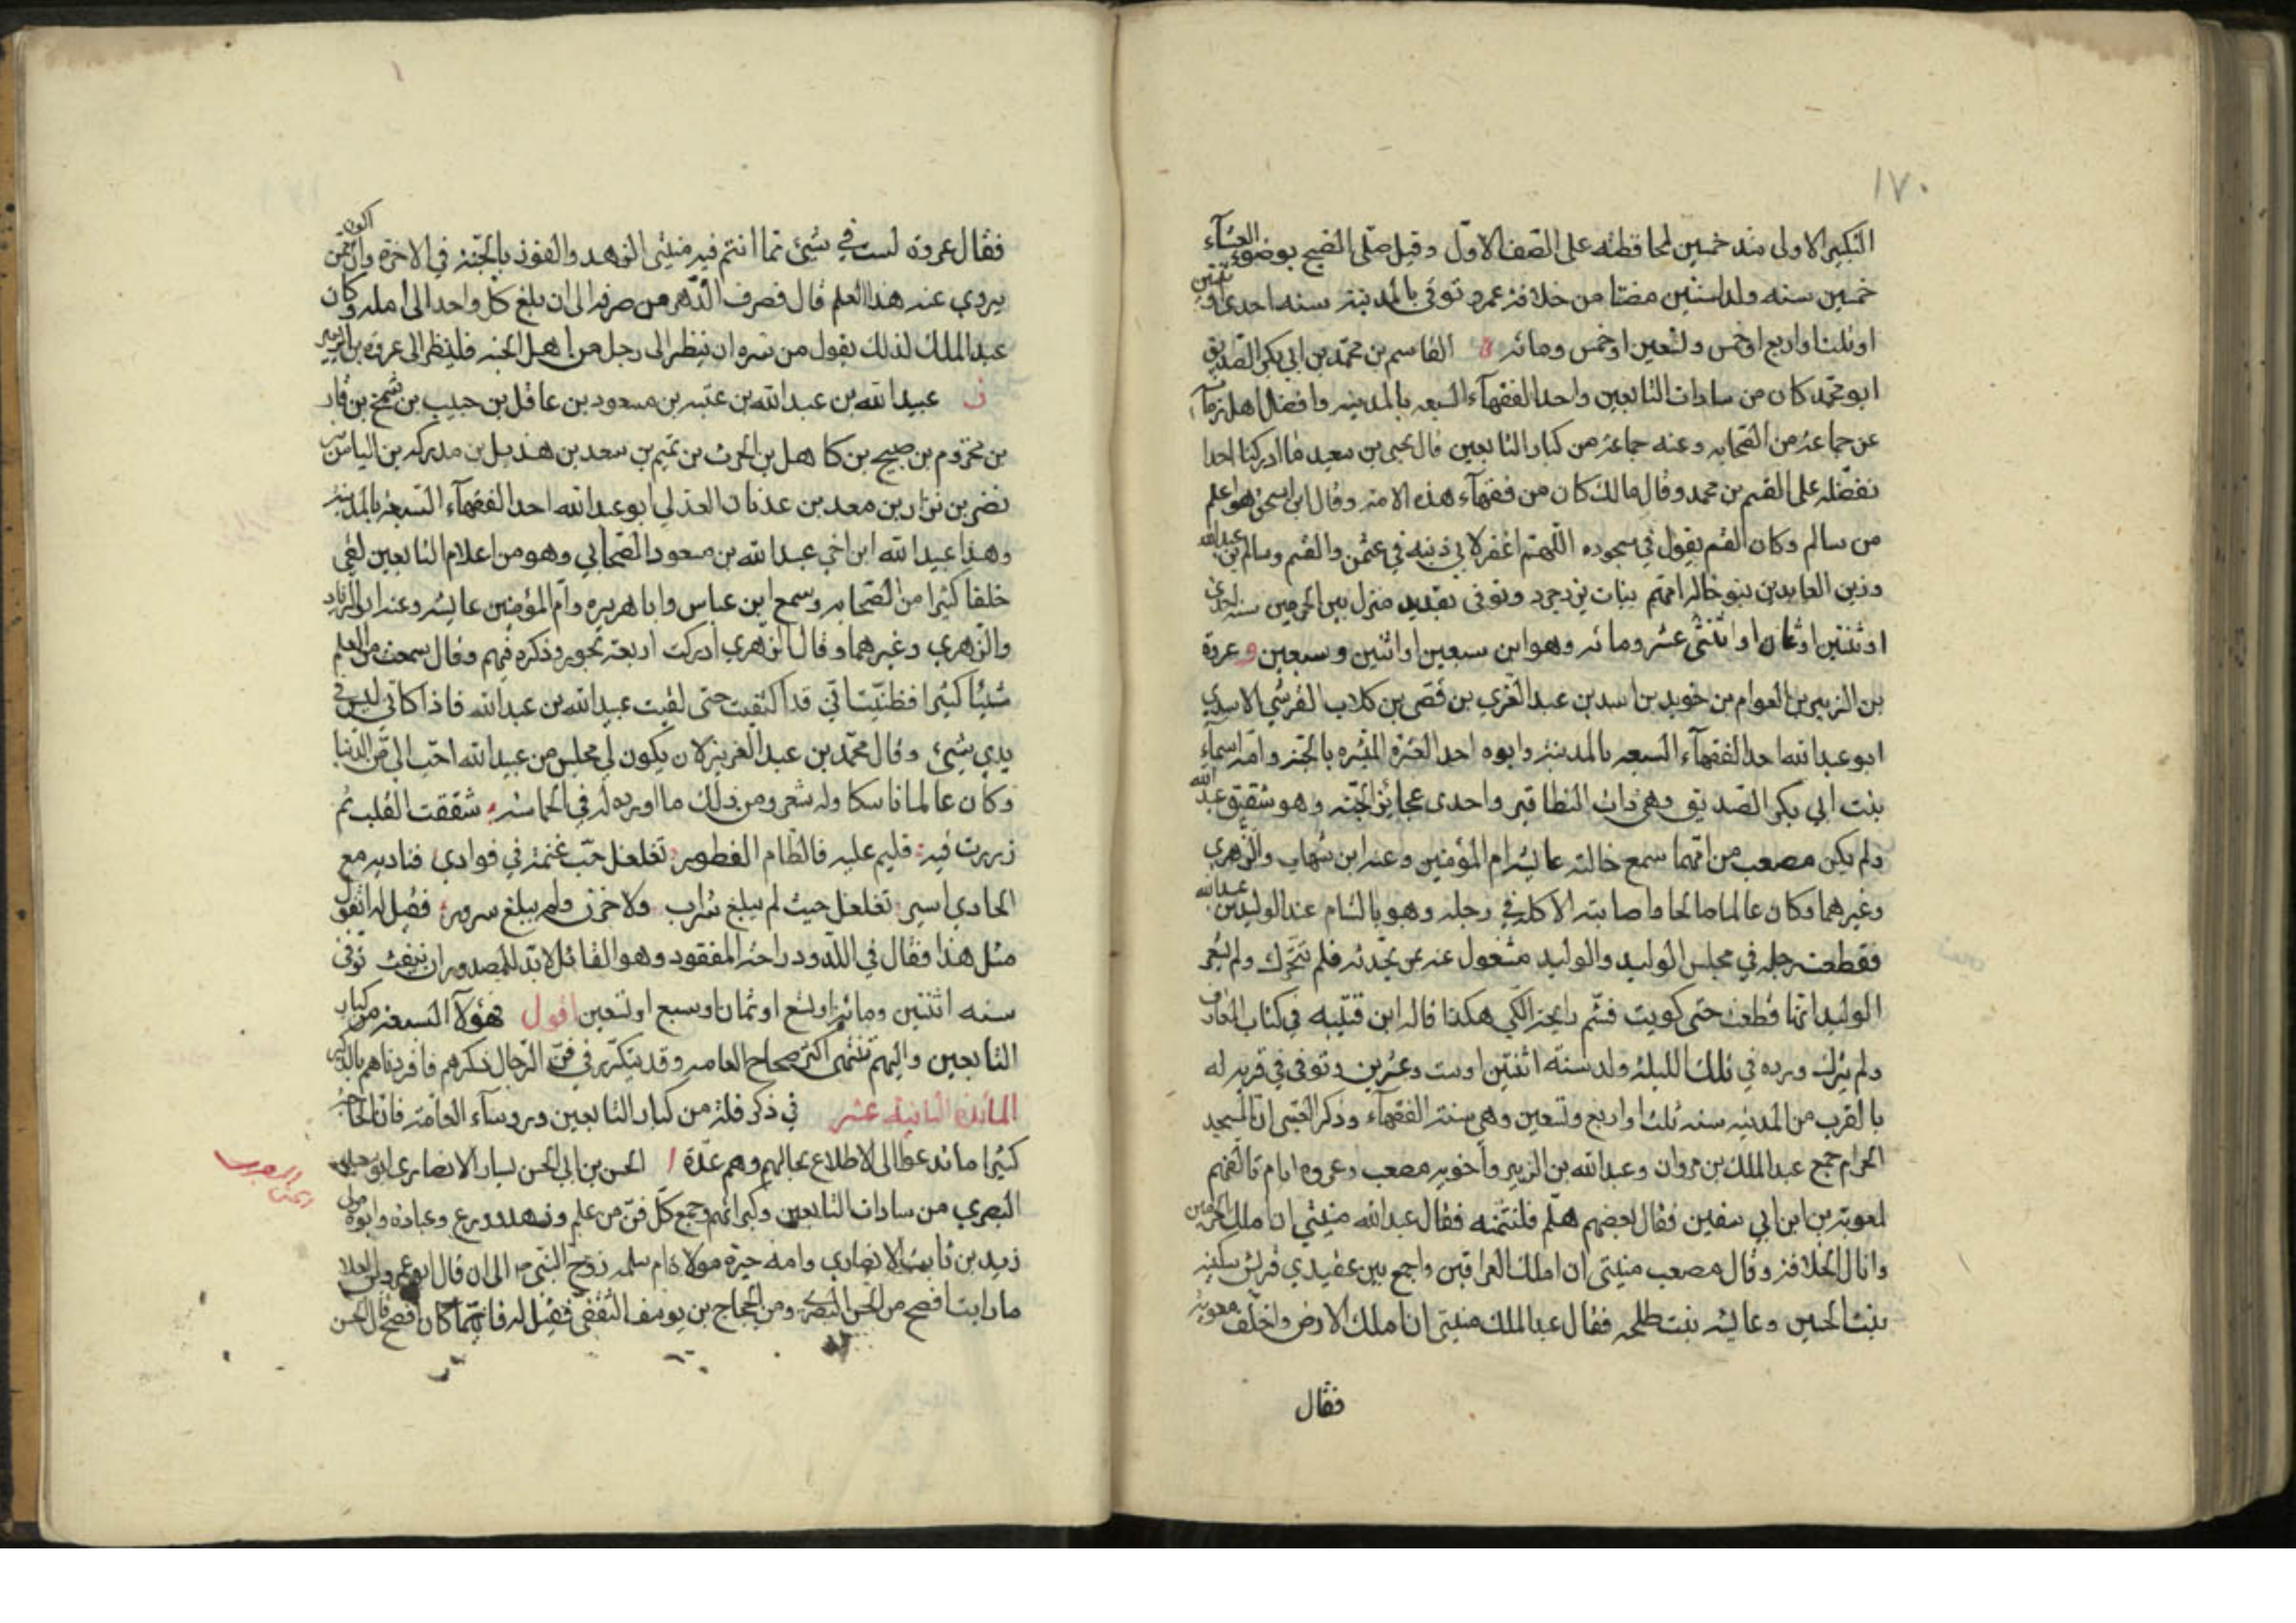 ١٧٠
التكبير الاولى منذ خمسين لمحافظته على الصف الاول وقيل صلى الصبح بوضوء العشاء
خمسين سنه ولد لسنتين مضتا من خلافة عمر وتوفى بالمدينة سنه احدى او ثنتين
او ثلث او اربع او خمس وتسعين او خمس ومائة ه القاسم بن محمد بن ابي بكر الصديق
ابو محمد كان من سادات التابعين واحد الفقهآء السبعه بالمدينه وافضل اهل زمانه
عن جماعة من الصحابه وعنه جماعة من كبار التابعين قال يحيى بن سعيد ما ادركنا احدا
نفضله على القسم بن محمد وقال مالك كان من فقهآء هذه الامة وقال ابن اسحق هو اعلم
من سالم وكان القسم يقول في سجوده اللهم اغفر لابي ذنبه في عثمن والقسم وسالم بن عبدالله
وزين العابدين بنو خالة امهم بنات يزدجرد وتوفى بقديد منزل بين الحرمين سنه احدى
او ثنتين او ثمان او اثنتى عشر ومائه وهو ابن سبعين او اثنين وسبعين و عروة
بن الزبير بن العوام بن خويلد بن اسد بن عبد العزي بن قصى بن كلاب القرشي الاسدي
ابو عبدالله احد الفقهآء السبعه بالمدينة وابوه احد العشرة المبشره بالجنة وامه اسمآء
بنت ابي بكر الصديق وهى ذات النطاقين واحدى عجائز الجنه وهو شقيق عبد الله
ولم يكن مصعب من امهما سمع خالته عايشه ام المؤمنين وعنه ابن شهاب والزهري
وغيرهما وكان عالما صالحا واصابته الاكله في رجله وهو بالشام عند الوليد بن عبدالله
فقطعت رجله في مجلس الوليد والوليد مشغول عنه بمن يحدثه فلم يتحرك ولم يشعر
الوليد انها قطعت حتى كويت فشم رايحة الكي هكذا قاله ابن قتيبه في كتاب المعارف
ولم يترك ورده في تلك الليلة ولد سنة اثنتين او ست وعشرين وتوفى في قرية له
بالقرب من المدينه سنه ثلث او اربع وتسعين وهى سنة الفقهآء وذكر العتبى ان المسجد
الحرام جمع عبد الملك بن مروان وعبدالله بن الزبير واخويه مصعب وعروه ايام تالفهم
لمعوية بن ابي سفين فقال بعضهم هلم فلنتمنه فقال عبدالله منيتي ان املك الحرمين
وانال الخلافة وقال مصعب منيتى ان املك العراقين واجمع بين عقيدي قريش سكينه
بنت الحسين وعايشه بنت طلحه فقال عبد الملك منيتى ان املك الارض واخلف معوية
فقال
فقال عروة لست في شيئ مما انتم فيه منيتى الزهد والفوز بالجنة في الاخرة وان اكون ممن
يروي عنه هذا العلم قال فصرف الدهر من صرفه الى ان بلغ كل واحد الى امله وكان
عبد الملك لذلك يقول من سره ان ينظر الى رجل من اهل الجنه فلينظر الى عروة بن الزبير
ز عبيد الله بن عبد الله بن عتبه بن مسعود بن عاقل بن حبيب بن شمخ بن فار
بن مخزوم بن صبيح بن كاهل بن الحرث بن تميم بن سعد بن هذيل بن مدركه بن الياس بن
نضر بن نزار بن معد بن عدنان العذلي ابو عبد الله احد الفقهآء السبعة بالمدينة
وهذا عبيد الله ابن اخي عبد الله بن مسعود الصحابي وهو من اعلام التابعين لقى
خلقا كثيرا من الصحابه وسمع ابن عباس وابا هريره وام المؤمنين عايشه وعنه ابو الزناد
والزهري وغيرهما وقال الزهري ادركت اربعة بحور وذكره فيهم وقال سمعت من العلم
شيئا كثيرا فظننت اني قد اكتفيت حتى لقيت عبيد الله بن عبد الله فاذا كاني ليس في
يدي شيئ وقال محمد بن عبد العزيز لان يكون لي مجلس من عبيد الله احب الى من الدنيا
وكان عالما ناسكا وله شعر ومن ذلك ما اورده له في الحماسة شققت القلب ثم
زررت فيه قليم عليه فالظام الفطور تغلغل حب غنمة في فوادي فناديه مع
الحادي اسير تغلغل حيث لم يبلغ شراب ولا حزن ولم يبلغ سرور فقيل له اتقول
مثل هذا فقال في اللدود راحة المفقود وهو القائل لا بد للمصدور ان ينفث توفى
سنه اثنتين ومائة او تسع او ثمان او سبع او تسعين اقول هؤلآ السبعة من كبار
التابعين واليهم تنتهى اكثر صحاح العامه وقد يتكرر في فن الرجال ذكرهم فافردناهم بالذكر
المائدة الثانية عشر في ذكر فلة من كبار التابعين وروسآء العامة فان الحاجة
كثيرا ما تدعو الى الاطلاع بحالهم وهم عدة ا الحسن بن ابي الحسن يسار الانصارى ابو سعيد
البصري من سادات التابعين وكبرائهم وجمع كل فن من علم وزهد وورع وعبادة وابوه مولى
زيد بن ثابت الانصاري وامه خيرة مولاة ام سلمه زوج النبي ص الى ان قال ابو عمرو بن العلا
ما رايت افصح من الحسن البصرى ومن الحجاج بن يوسف الثقفى فقيل له فايهما كان افصح قال الحسن
الحسن البصرى